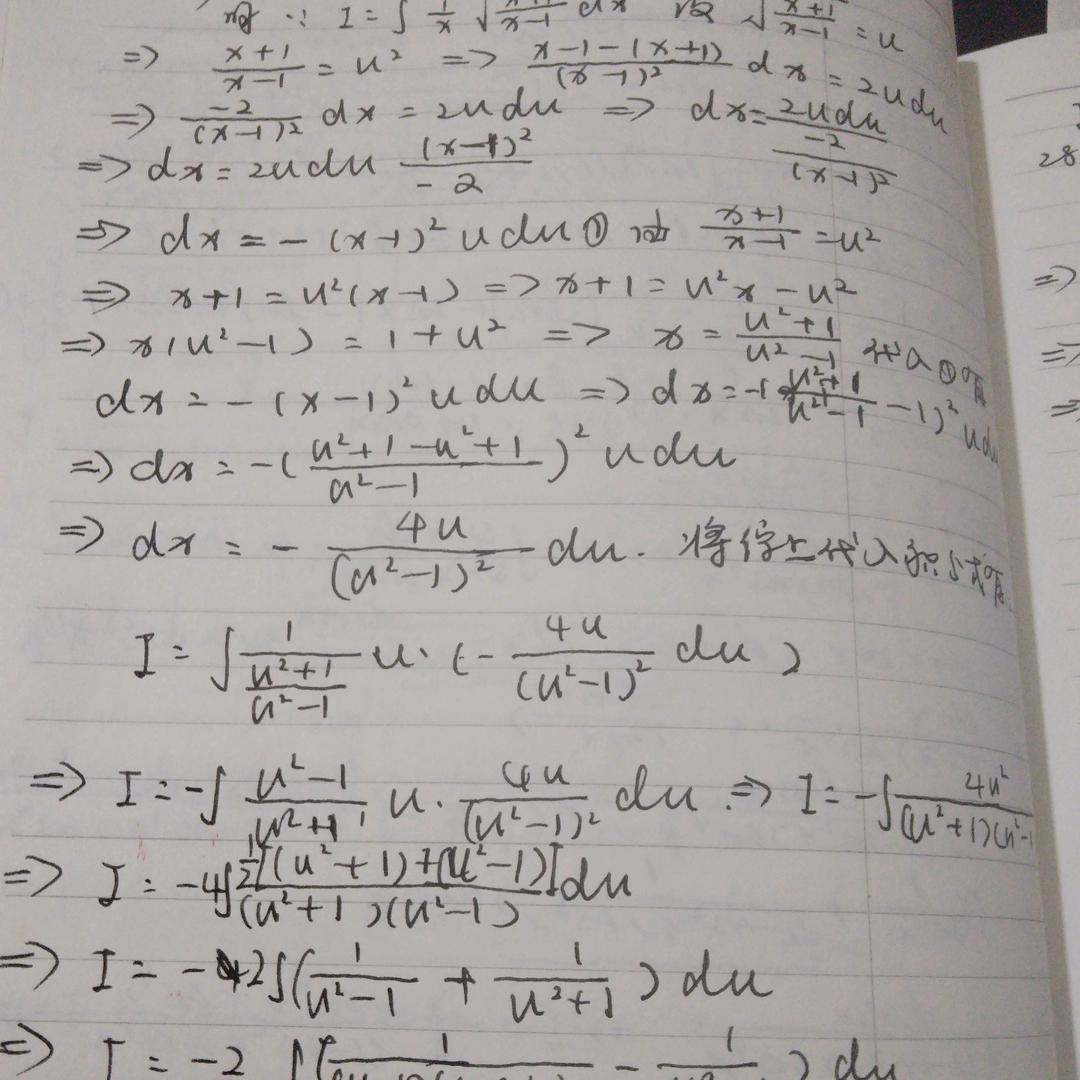 解: I = ∫ 1/x √((x+1)/(x-1)) dx 设 √((x+1)/(x-1)) = u
=> (x+1)/(x-1) = u² => (x-1-(x+1))/(x-1)² dx = 2udu
=> -2/(x-1)² dx = 2udu => dx = 2udu/(-2/(x-1)²)
=> dx = 2udu (x-1)²/-2
=> dx = -(x-1)² u du ① 由 (x+1)/(x-1) = u²
=> x+1 = u²(x-1) => x+1 = u²x - u²
=> x(u²-1) = 1+u² => x = (u²+1)/(u²-1) 代入①有
dx = -(x-1)² u du => dx = -((u²+1)/(u²-1) - 1)² u du
=> dx = -((u²+1-u²+1)/(u²-1))² u du
=> dx = - 4u/(u²-1)² du. 将综上代入积分式有
I = ∫ 1/((u²+1)/(u²-1)) u·(- 4u/(u²-1)² du)
=> I = -∫ (u²-1)/(u²+1) u· 4u/(u²-1)² du => I = -∫ 4u²/((u²+1)(u²-1
=> I = -4∫ ½[(u²+1)+(u²-1)]/((u²+1)(u²-1)) du
=> I = -2∫(1/(u²-1) + 1/(u²+1)) du
=> I = -2 ∫( 1/ - 1/ ) du
28
=>
=>
=>